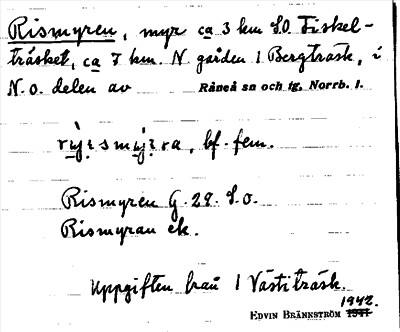 Rismyren, myr ca 3 km S.O. Fiskel-
träsket, ca 7 km. N gården 1 Bergträsk, i
N.o. delen av Råneå sn och tg, Norrb. l.
Rismyren G. 28. S.o.
Rismyran ek.
Uppgiften från 1 Västiträsk.
1942.
EDVIN BRÄNNSTRÖM 1941